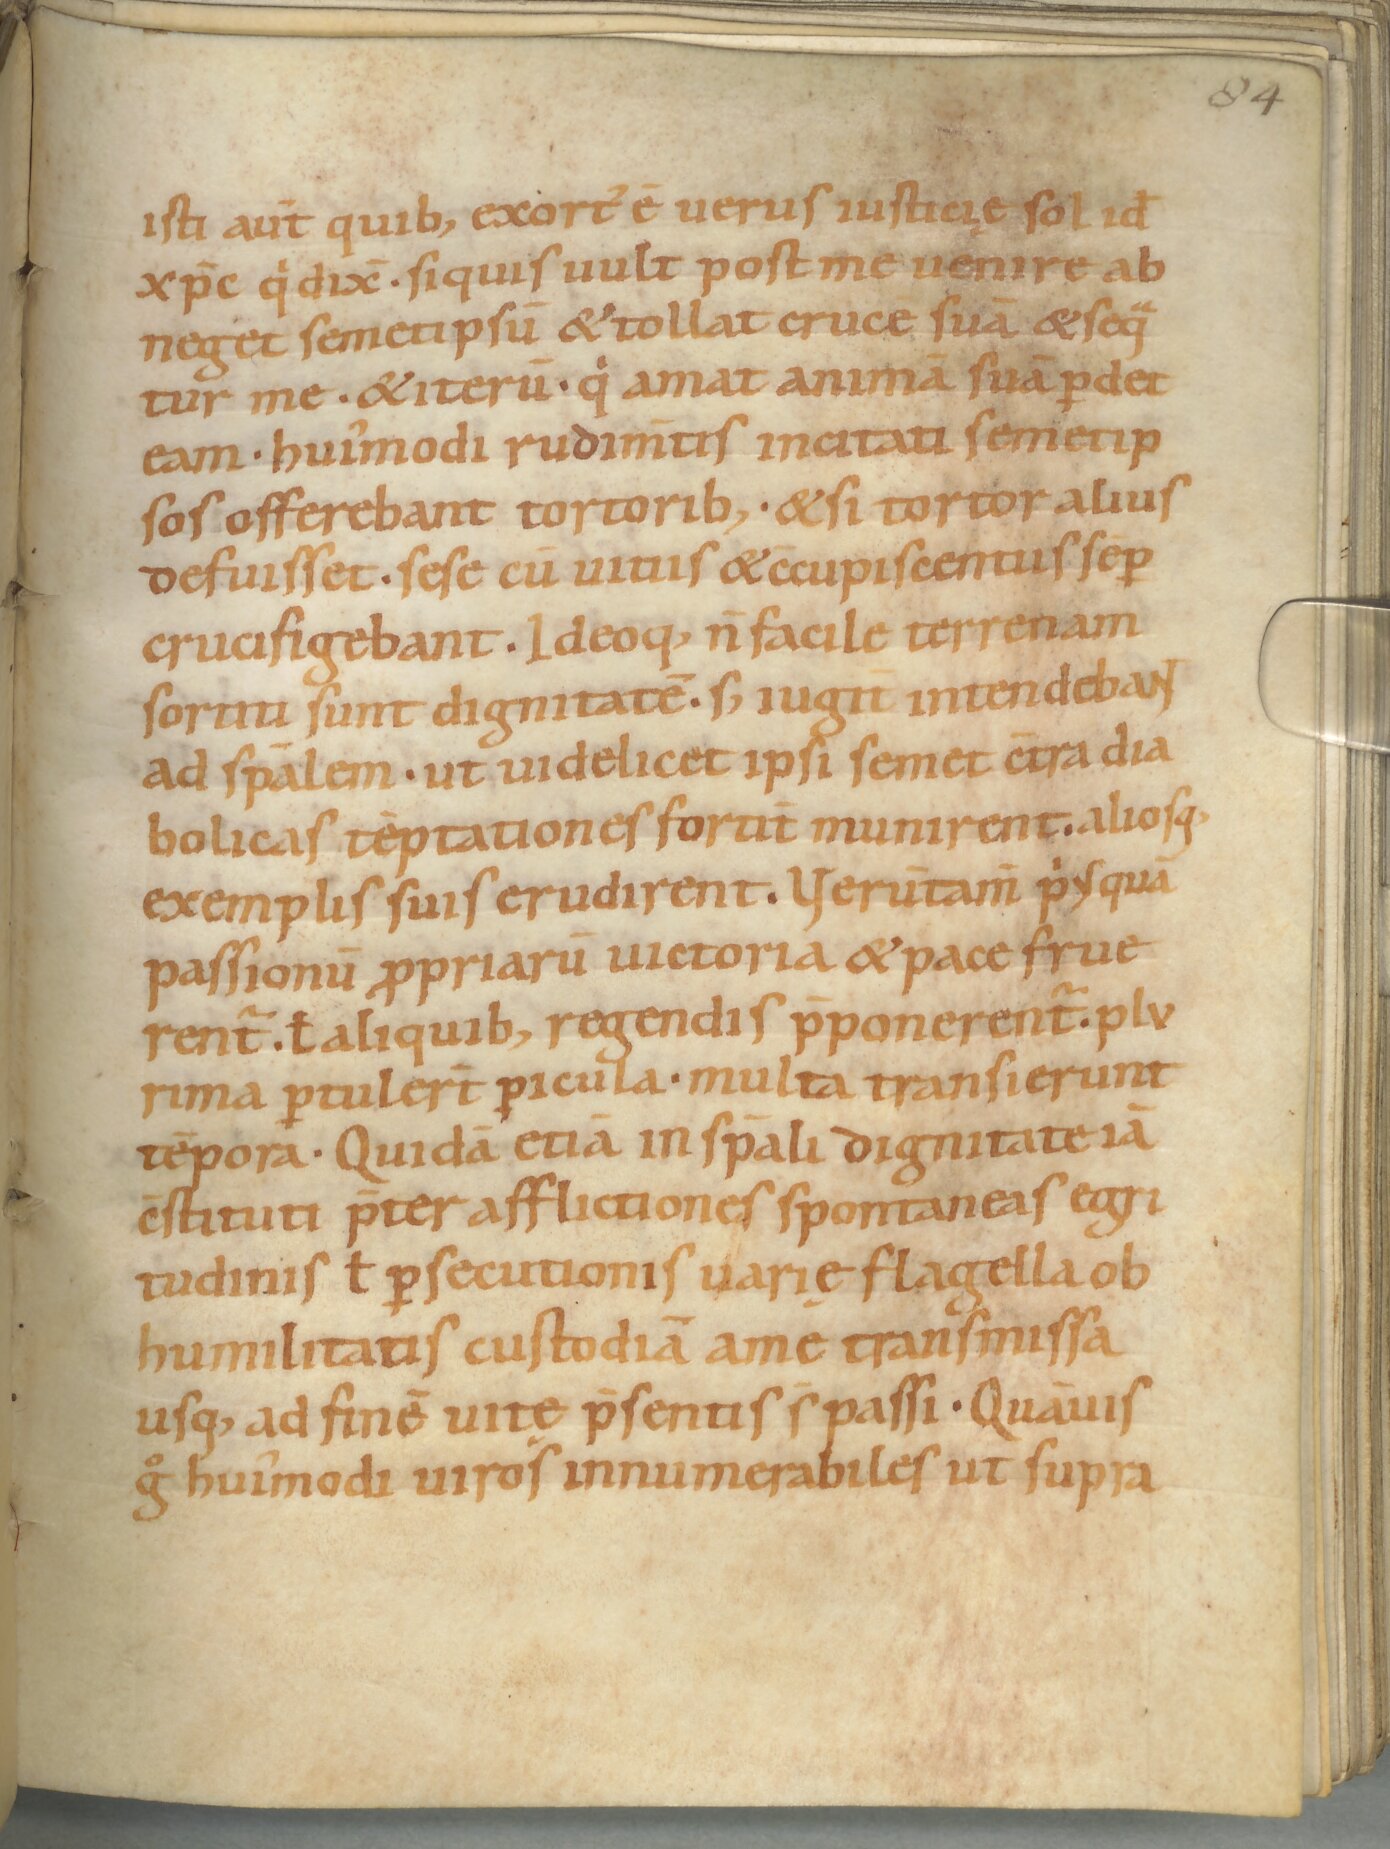 84
isti aut̄ quib; exort᾽ ē uerus iusticię sol id̄
xp̄c q̇ dix̄ · siquis uult post me uenire ab
neget semetipsū & tollat crucē suā & seqᵃ
tur me · & iterū · q̇ amat animā suā ꝑdet
eam · hui᾽modi rudim̄tis incitati semetip
sos offerebant tortorib; · & si tortor alius
defuisset · sese cū uitiis & c̄cupiscentiis sēꝑ
crucifigebant . Ideoq; n̄ facile terrenam
sortiti sunt dignitatē . s; iugit̄ intendebaɴᴛ
ad sp̄alem · ut uidelicet ipsi semet c̄tra dia
bolicas tēptationes fortit̄ munirent . aliosq;
exemplis suis erudirent . Uerūtam̄ ṗ᾽squā
passionū ꝓpriarū uictoria & pace frue
rent᷑ . ł aliquib; regendis p̄ponerent᷑ . plu
rima ꝑtulert̄ ꝑicula · multa transierunt
tēpora · Quidā etiā in sp̄ali dignitate iā
c̄stituti p̄ter afflictiones spontaneas egri
tudinis ł ꝑsecutionis uarię flagella ob
humilitatis custodiā a me transmissa
usq; ad finē uitę p̄sentis s̄ passi · Quāuis
gͦ hui᾽modi uiros innumerabiles ut supra